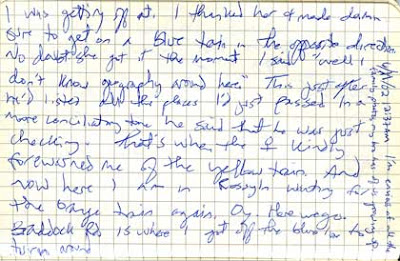 I was getting off at, I thanked her & made damn
sure to get on a blue train in the opposite direction.
No doubt she got it the moment I said "well I
don't know geography around here." This just after
he'd listed all the places I'd just passed. In a
more conciliatory tone he said that he was just
checking. That's when the ♀ kindly
forewarned me of the yellow train. And
now here I am in Rosslyn waiting for
the Orange train again. Oy
Braddock Rd is where I got off the blue line to
turn around
12:37am I'm